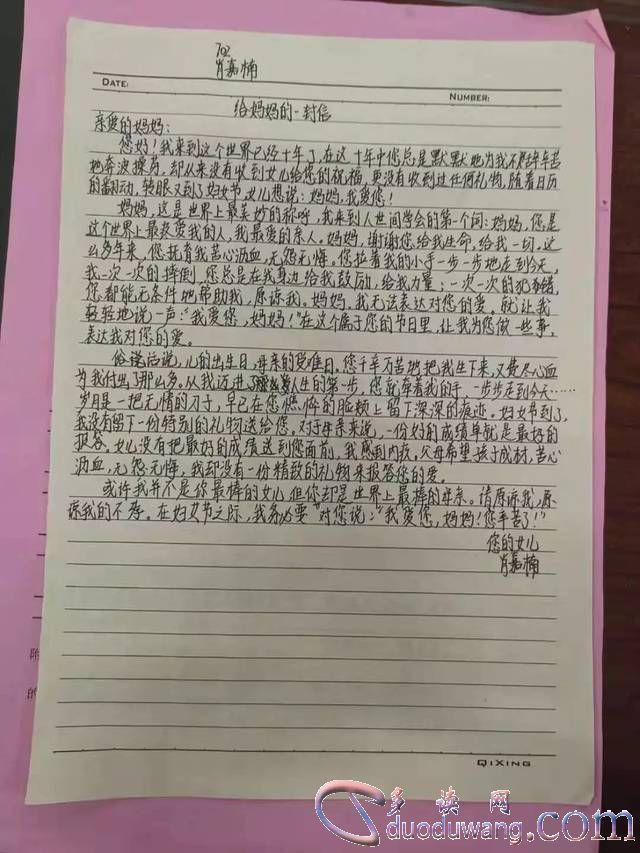 702
肖嘉楠
DATE:
NUMBER:
给妈妈的一封信
亲爱的妈妈：
您好！我来到这个世界已经十年了，在这十年中您总是默默地为我不辞辛苦
地奔波操劳，却从来没有收到女儿给您的祝福，更没有收到过任何礼物，随着日历
的翻动，转眼又到了妇女节，女儿想说：妈妈，我爱您！
妈妈，这是世界上最美妙的称呼，我来到人世间学会的第一个词：妈妈，您是
这个世界上最疼爱我的人，我最爱的亲人。妈妈，谢谢您给我生命，给我一切。这
么多年来，您抚育我苦心沥血，无怨无悔。您拉着我的小手一步一步地走到今天，
我一次一次的摔倒，您总是在我身边给我鼓励，给我力量；一次一次的犯错，
您都能无条件地帮助我，原谅我。妈妈，我无法表达对您的爱。就让我
轻轻地说一声：“我爱您，妈妈！”在这个属于您的节日里，让我为您做一些事，
表达我对您的爱。
俗话说，儿的出生日，母亲的受难日。您千辛万苦地把我生下来，又费尽心血
为我付出了那么多，从我迈进了人生的第一步，您就牵着我的手，一步步走到今天……
岁月是一把无情的刀子，早已在您憔悴的脸颊上留下深深的痕迹。妇女节到了，
我没有留下一份特别的礼物送给您。对于母亲来说，一份好的成绩单就是最好的
报答。女儿没有把最好的成绩送到您面前，我感到内疚。父母希望孩子成材，苦心
沥血，无怨无悔，我却没有一份精致的礼物来报答您的爱。
或许我并不是你最棒的女儿，但你却是世界上最棒的母亲。请原谅我，原
谅我的不孝。在妇女节之际，我务必要“对您说：“我爱您，妈妈！您辛苦了！”
您的女儿
肖嘉楠
QIXING
多读网
duoduwang.com